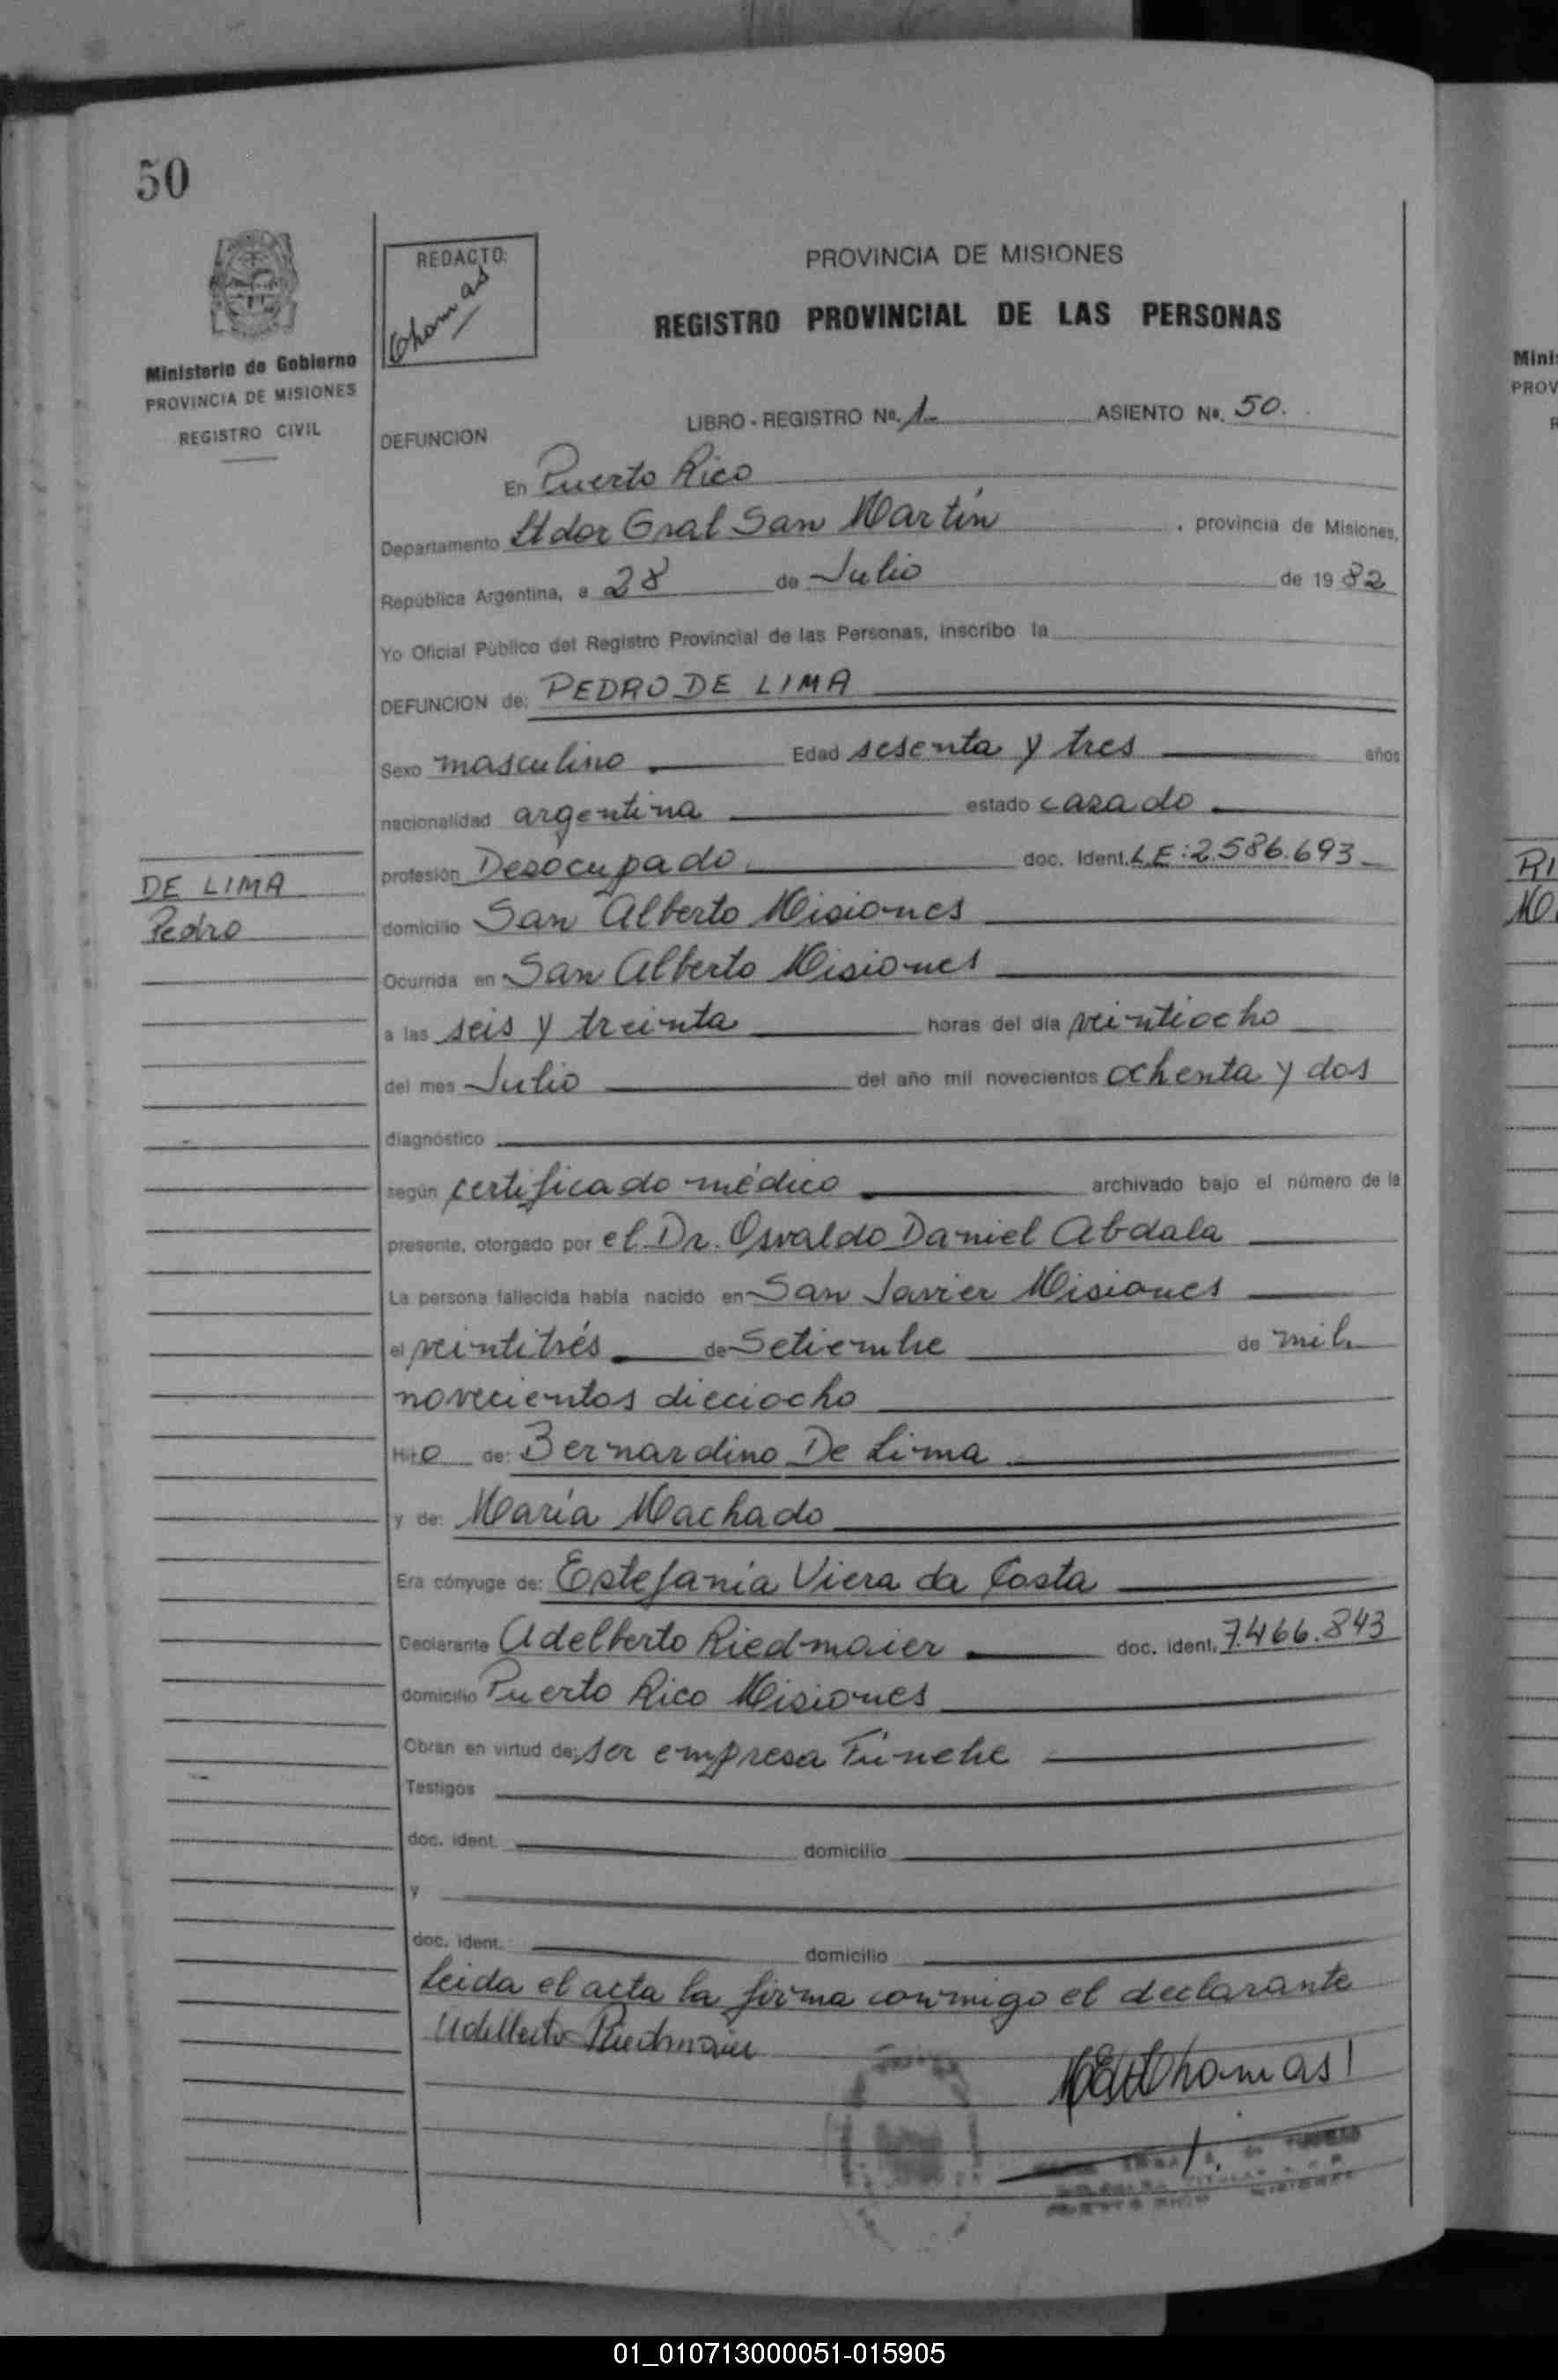 50
Ministerio de Gobierno
PROVINCIA DE MISIONES
REGISTRO CIVIL
REDACTO:
Thomas
PROVINCIA DE MISIONES
REGISTRO PROVINCIAL DE LAS PERSONAS
LIBRO - REGISTRO No. 1- ASIENTO No. 50.
DEFUNCION
En Puerto Rico
Departamento Ltdor Gral San Martín , provincia de Misiones,
República Argentina, a 28 de Julio de 1982
Yo Oficial Público del Registro Provincial de las Personas, inscribo la
DEFUNCION de: PEDRO DE LIMA
Sexo masculino Edad sesenta y tres años
nacionalidad argentina estado casado
profesión Desocupado doc. Ident. L.E:2.586.693
DE LIMA
Pedro
domicilio San Alberto Misiones
Ocurrida en San Alberto Misiones
a las seis y treinta horas del día veintiocho
del mes Julio del año mil novecientos ochenta y dos
diagnóstico
según certificado médico archivado bajo el número de la
presente, otorgado por el Dr. Osvaldo Daniel Abdala
La persona fallecida había nacido en San Javier Misiones
el veintitrés de Setiembre de mil
novecientos dieciocho
Hijo de: Bernardino De Lima
y de: María Machado
Era cónyuge de: Estefania Viera da Costa
Declarante Adelberto Riedmaier doc. ident. 7.466.843
domicilio Puerto Rico Misiones
Obran en virtud de: ser empresa Fúnebre
Testigos
doc. ident. domicilio
y
doc. ident. domicilio
Leida el acta la firma conmigo el declarante
Adelberto Riedmaier
Thomas
PUERTO RICO MISIONES
Mini
PROV
R
RI
01_010713000051-015905